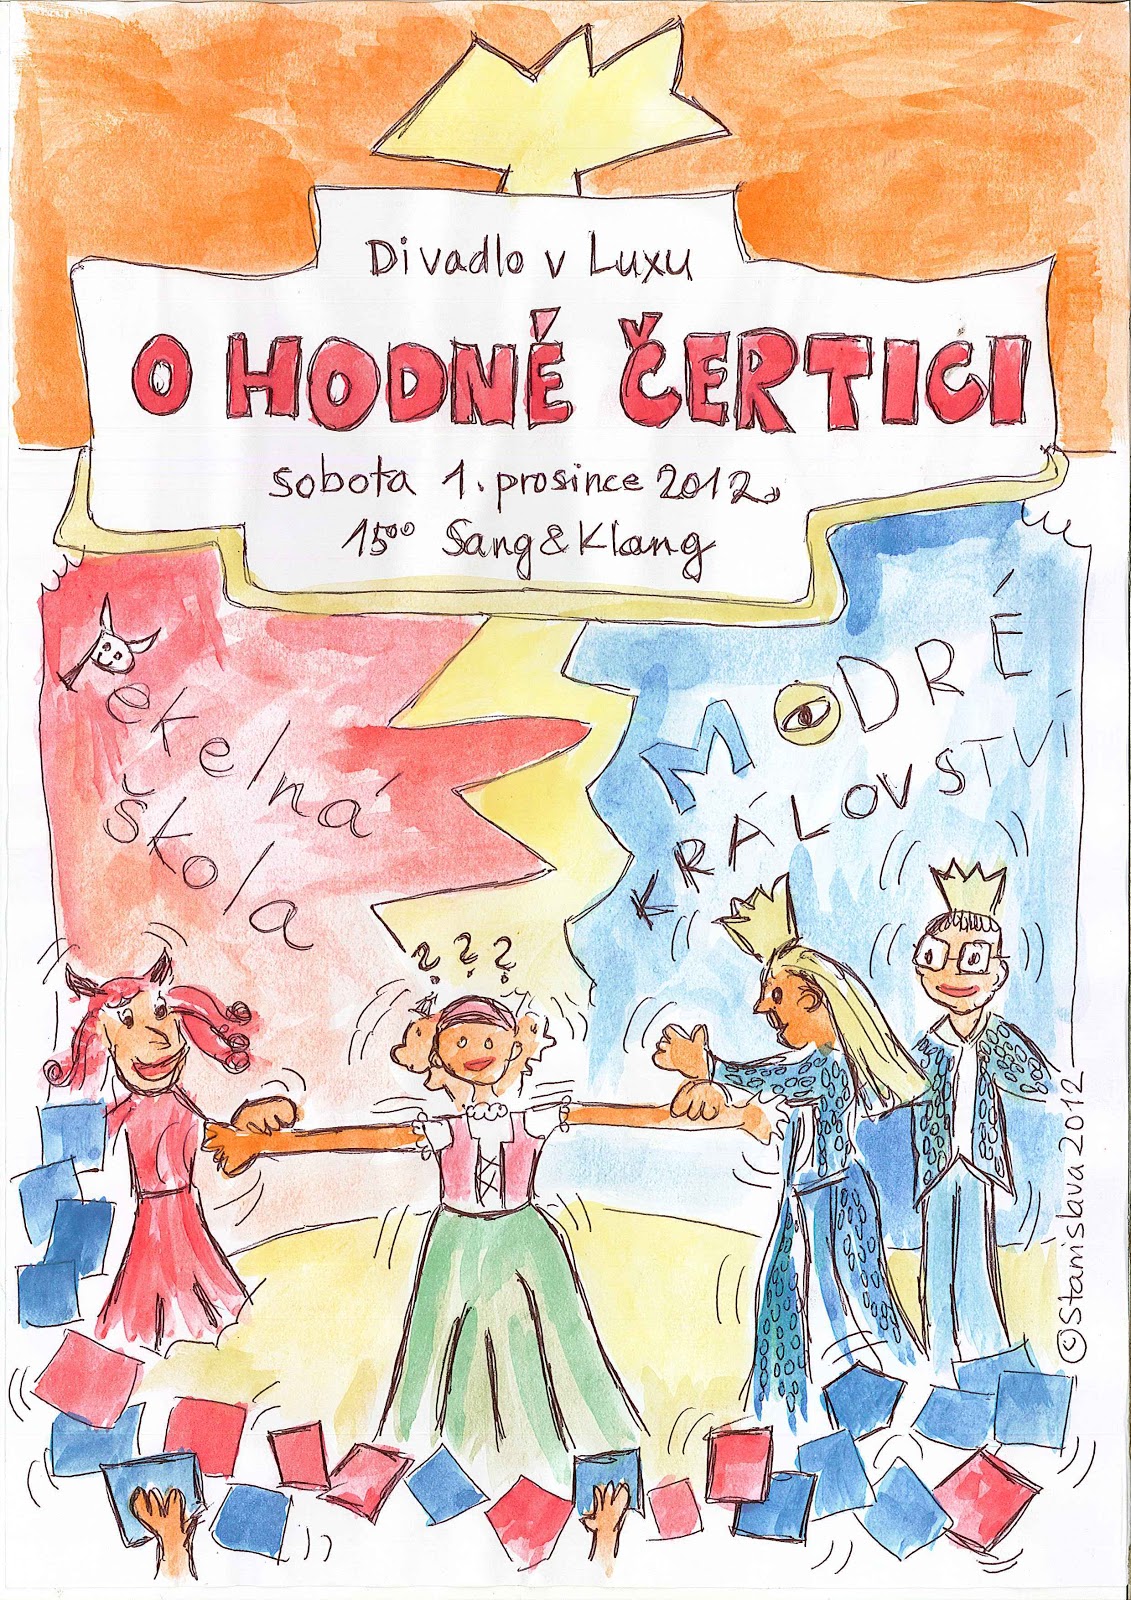 Divadlo v Luxu
O HODNÉ ČERTICI
sobota 1. prosince 2012
15⁰⁰ Sang&Klang
Pekelná
škola
MODRÉ
KRÁLOVSTVÍ
???
©Stanislava 2012